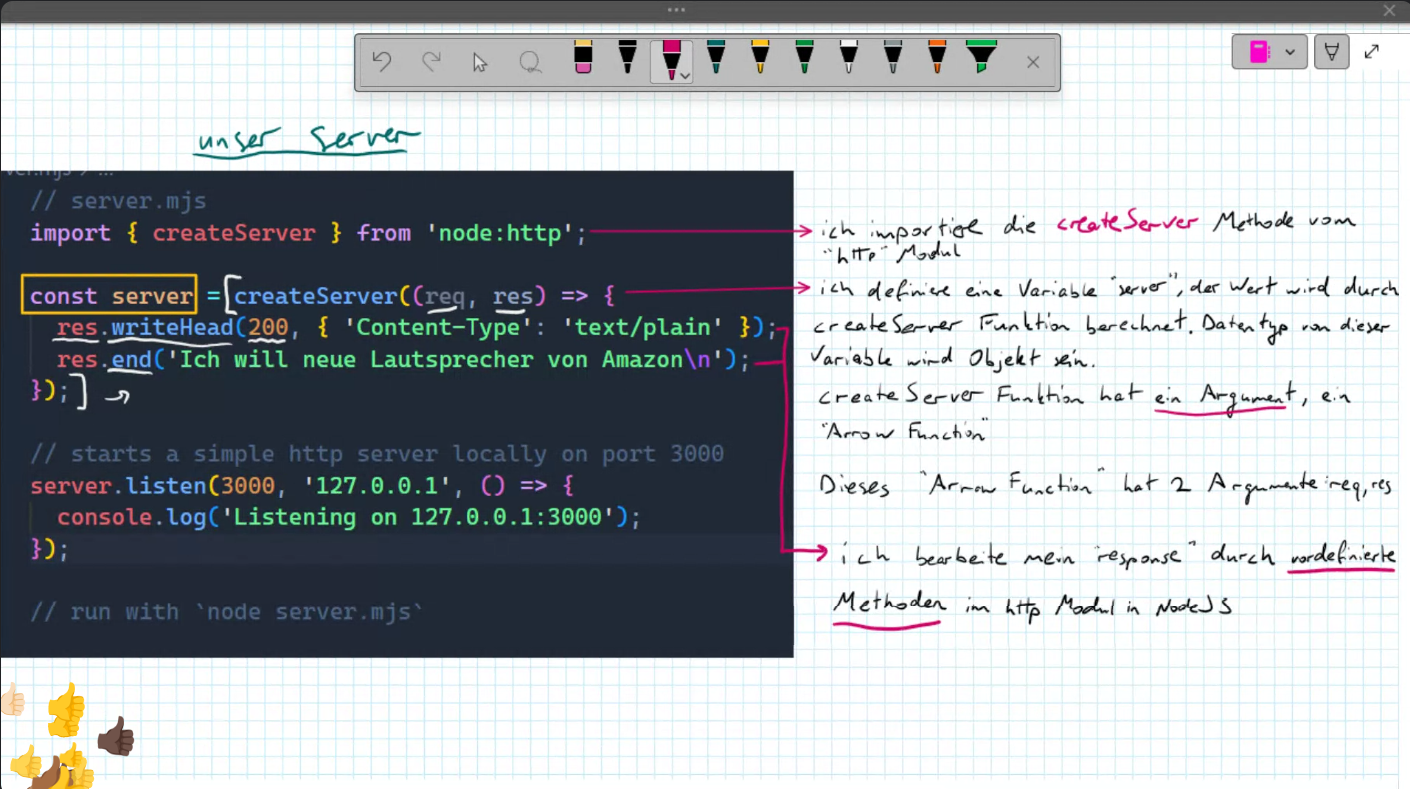 unser Server
// server.mjs
import { createServer } from 'node:http';
const server = createServer((req, res) => {
res.writeHead(200, { 'Content-Type': 'text/plain' });
res.end('Ich will neue Lautsprecher von Amazon\n');
});
// starts a simple http server locally on port 3000
server.listen(3000, '127.0.0.1', () => {
console.log('Listening on 127.0.0.1:3000');
});
// run with `node server.mjs`
ich importiere die createServer Methode vom
"http" Modul
ich definiere eine Variable "server", der Wert wird durch
createServer Funktion berechnet. Datentyp von dieser
Variable wird Objekt sein.
createServer Funktion hat ein Argument, ein
"Arrow Function"
Dieses "Arrow Function" hat 2 Argumente: req, res
ich bearbeite mein "response" durch vordefinierte
Methoden im http Modul in NodeJS